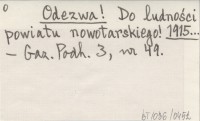 Odezwa! Do ludności
powiatu nowotarskiego! 1915...
– Gaz. Podh. 3, nr 49.